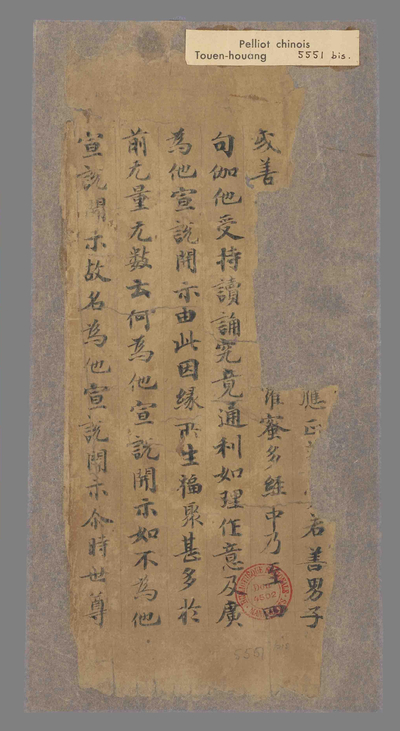 Pelliot chinois
Touen-houang 5551 bis.
應正 若善男子
或善 羅蜜多經中乃至四
句伽他受持讀誦究竟通利如理作意及廣
為他宣說開示由此因緣所生福聚甚多於
前无量无數云何為他宣說開示如不為他
宣說開示故名為他宣說開示尒時世尊
5551